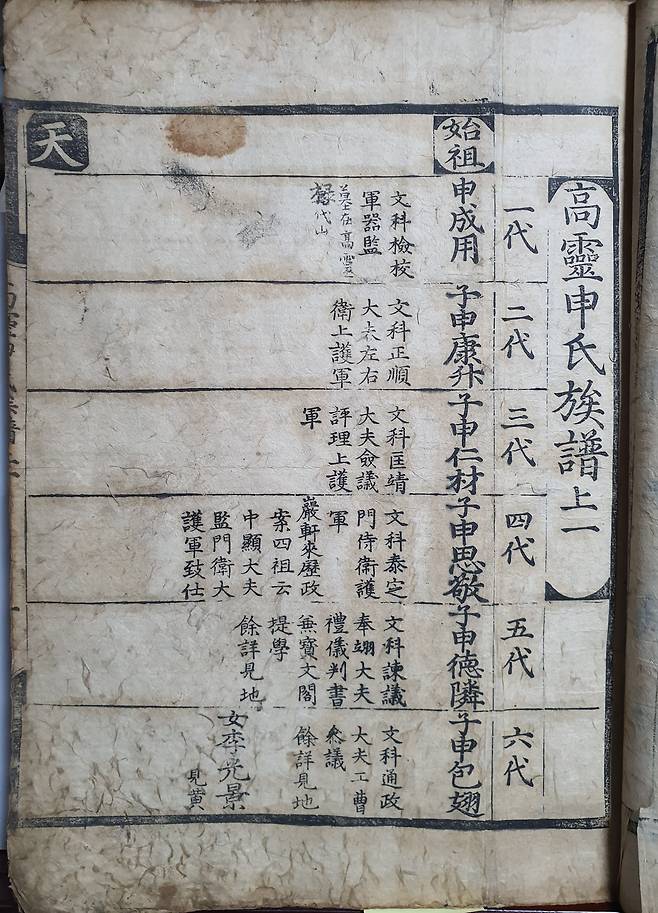 高靈申氏族譜上一
一代
二代
三代
四代
五代
六代
始祖
申成用
文科檢校
軍器監
墓在高靈
代山
子申康升
文科正順
大夫左右
衛上護軍
子申仁材
文科匡靖
大夫僉議
評理上護
軍
子申思敬
文科泰定
門侍衛護
軍
巖軒來歷政
案四祖云
中顯大夫
監門衛大
護軍致仕
子申德隣
文科諫議
奉翊大夫
禮儀判書
無寶文閣
提學
餘詳見地
子申包翅
文科通政
大夫工曹
參議
餘詳見地
女李光景
見黃
天